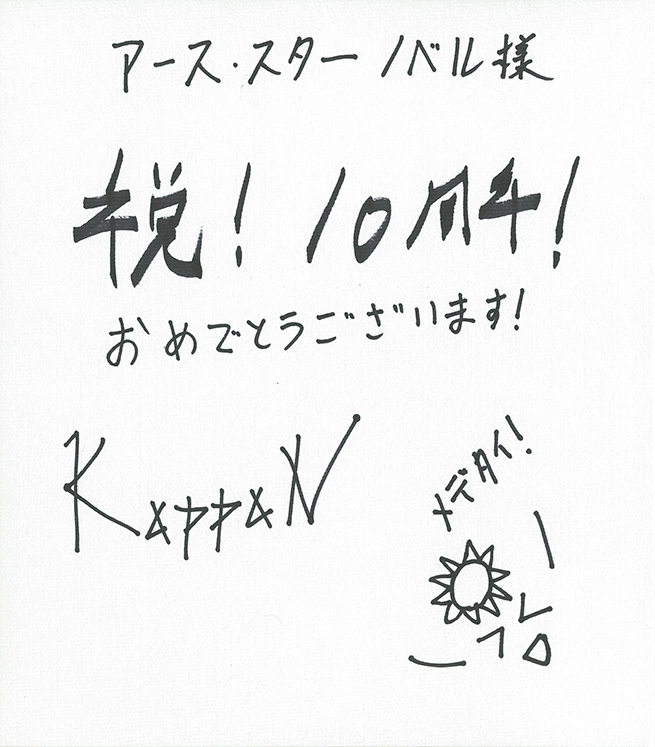 アース・スターノベル様
税！10周年！
おめでとうございます！
KappaN
メデタイ！